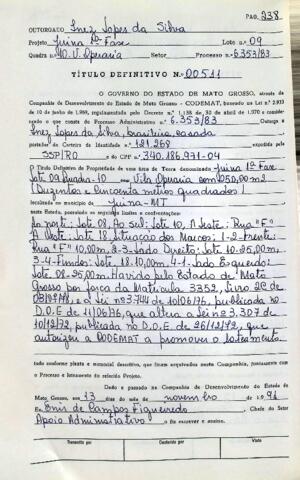 PAG. 238
OUTORGADO Inez Lopes da Silva
Projeto Juina 1ª Fase Lote n.o 09
Quadra n.o 10 V. Operaria Setor Processo n.o 6353/83
TÍTULO DEFINITIVO N.o 00511
O GOVERNO DO ESTADO DE MATO GROSSO, através da
Companhia de Desenvolvimento do Estado de Mato Grosso - CODEMAT, baseado na Lei n.o 2.933
de 10 de junho de 1.969, regulamentada pelo Decreto n.o 1.138 de 30 de abril de 1.970 e considerando
o que consta do Processo Administrativo n.o 6.353/83 Outorga a
Inez Lopes da Silva, brasileira, casada
portador da Carteira de Identidade n.o 121.268 expedida pela
SSP/RO e do CPF n.o 340.186.971-04
O Título Definitivo de Propriedade de uma área de Terra denominada Juina 1ª Fase
Lote 09 Quadra-10 - Vila Operaria com 250,00 m2
(Duzentos e Cincoenta metros quadrados)
localizada no município de Juina-MT
neste Estado, possuindo os seguintes limites e confrontações:
Ao norte: Lote 08, Ao sul: Lote 10, A leste: Rua "F"
A Oeste: Lote 18. Situação dos Marcos: 1-2-Frente:
Rua "F" 10,00m. 2-3-Lado Direito: Lote 10-25,00m.
3-4-Fundos: Lote 18-10,00m. 4-1-Lado Esquerdo:
Lote: 08-25,00m. Havido pelo Estado de Mato
Grosso por força da Matricula 3352, Livro 2C de
e a Lei nº 3.744 de 10/06/76, publicada no
D.O.E de 11/06/76, que altera a Lei nº 3.307 de
10/12/72, publicada no D.O.E. de 26/12/72, que
autorizou a CODEMAT a promover o loteamento.
tudo conforme planta e memorial descritivo, que ficam arquivados nesta Companhia, juntamente com
o Processo e lançamento do referido Projeto.
Dado e passado na Companhia de Desenvolvimento do Estado de
Mato Grosso, aos 13 dias do mês de novembro de 1.991
Eu, Enis de Campos Figueiredo, Chefe do Setor
Apoio Administrativo o fiz escrever e assino.
Transcrito por
Conferido por
Visto